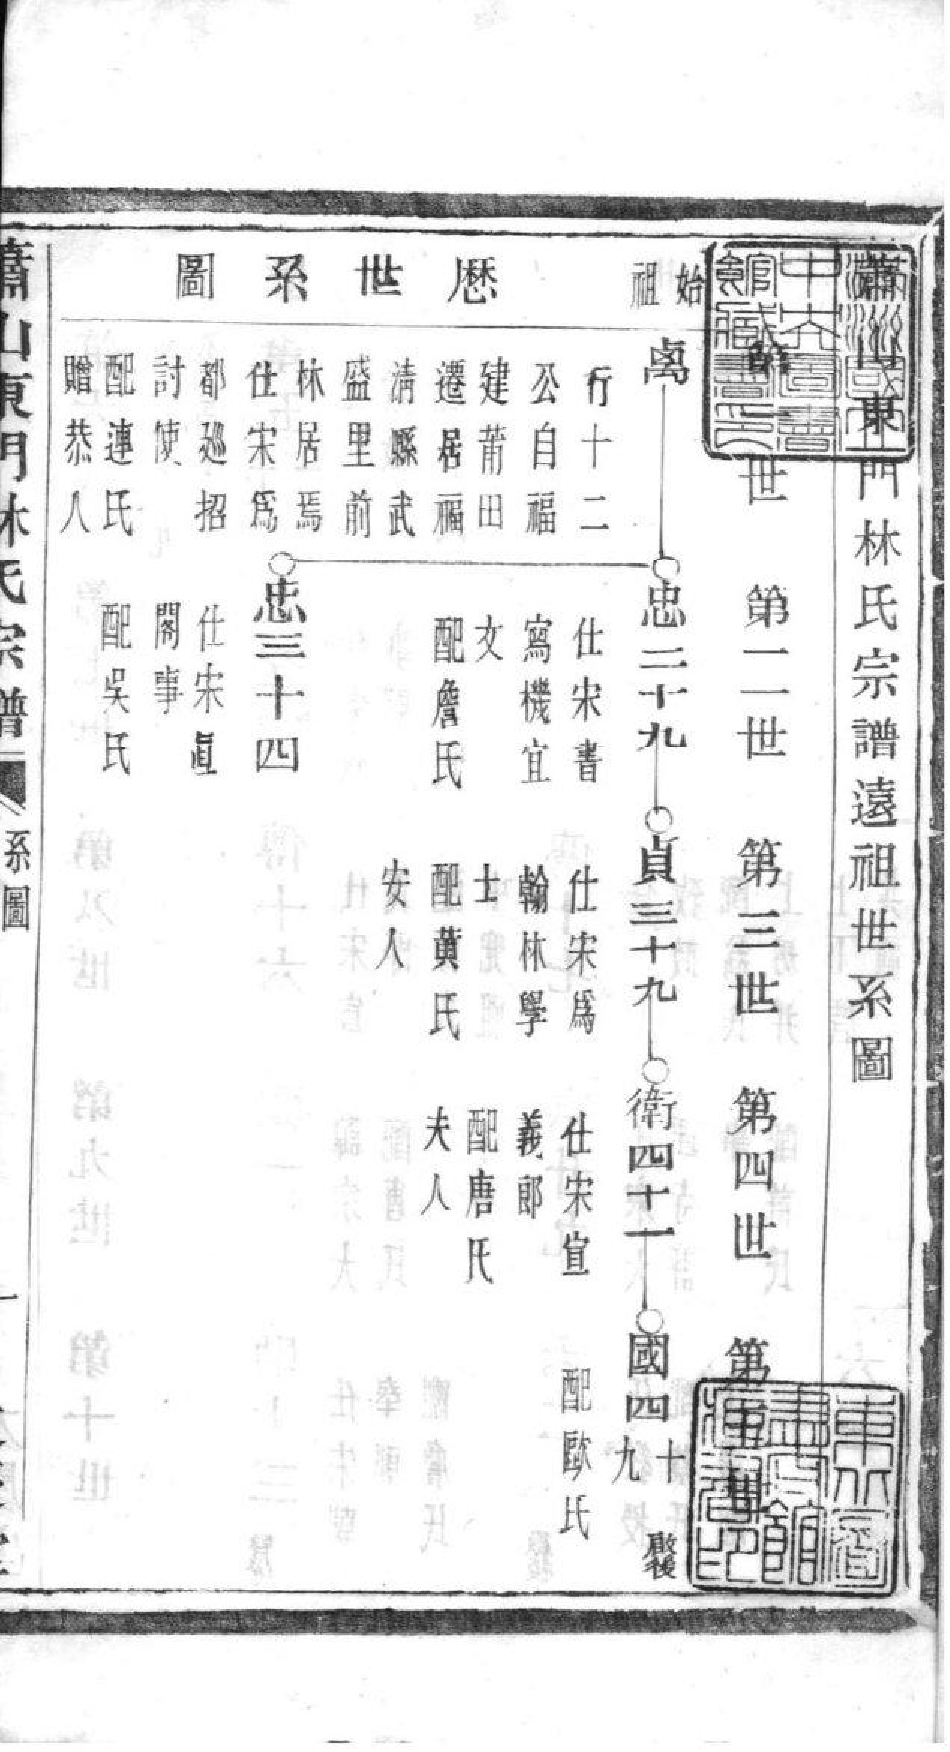 蕭山東門林氏宗譜遠祖世系圖
第一世
第二世
第三世
第四世
第五世
始祖
歷世系圖
禼
行十二
公自福
建莆田
遷居福
淸縣武
盛里前
林居焉
仕宋爲
都廵招
討使
配連氏
贈恭人
忠二十九
仕宋書
寫機宜
文
配詹氏
忠三十四
仕宋直
閣事
配吳氏
貞三十九
仕宋爲
翰林學
士
配黃氏
安人
衛四十一
仕宋宣
義郎
配唐氏
夫人
國四十九
配歐氏
蕭山東門林氏宗譜
系圖
一